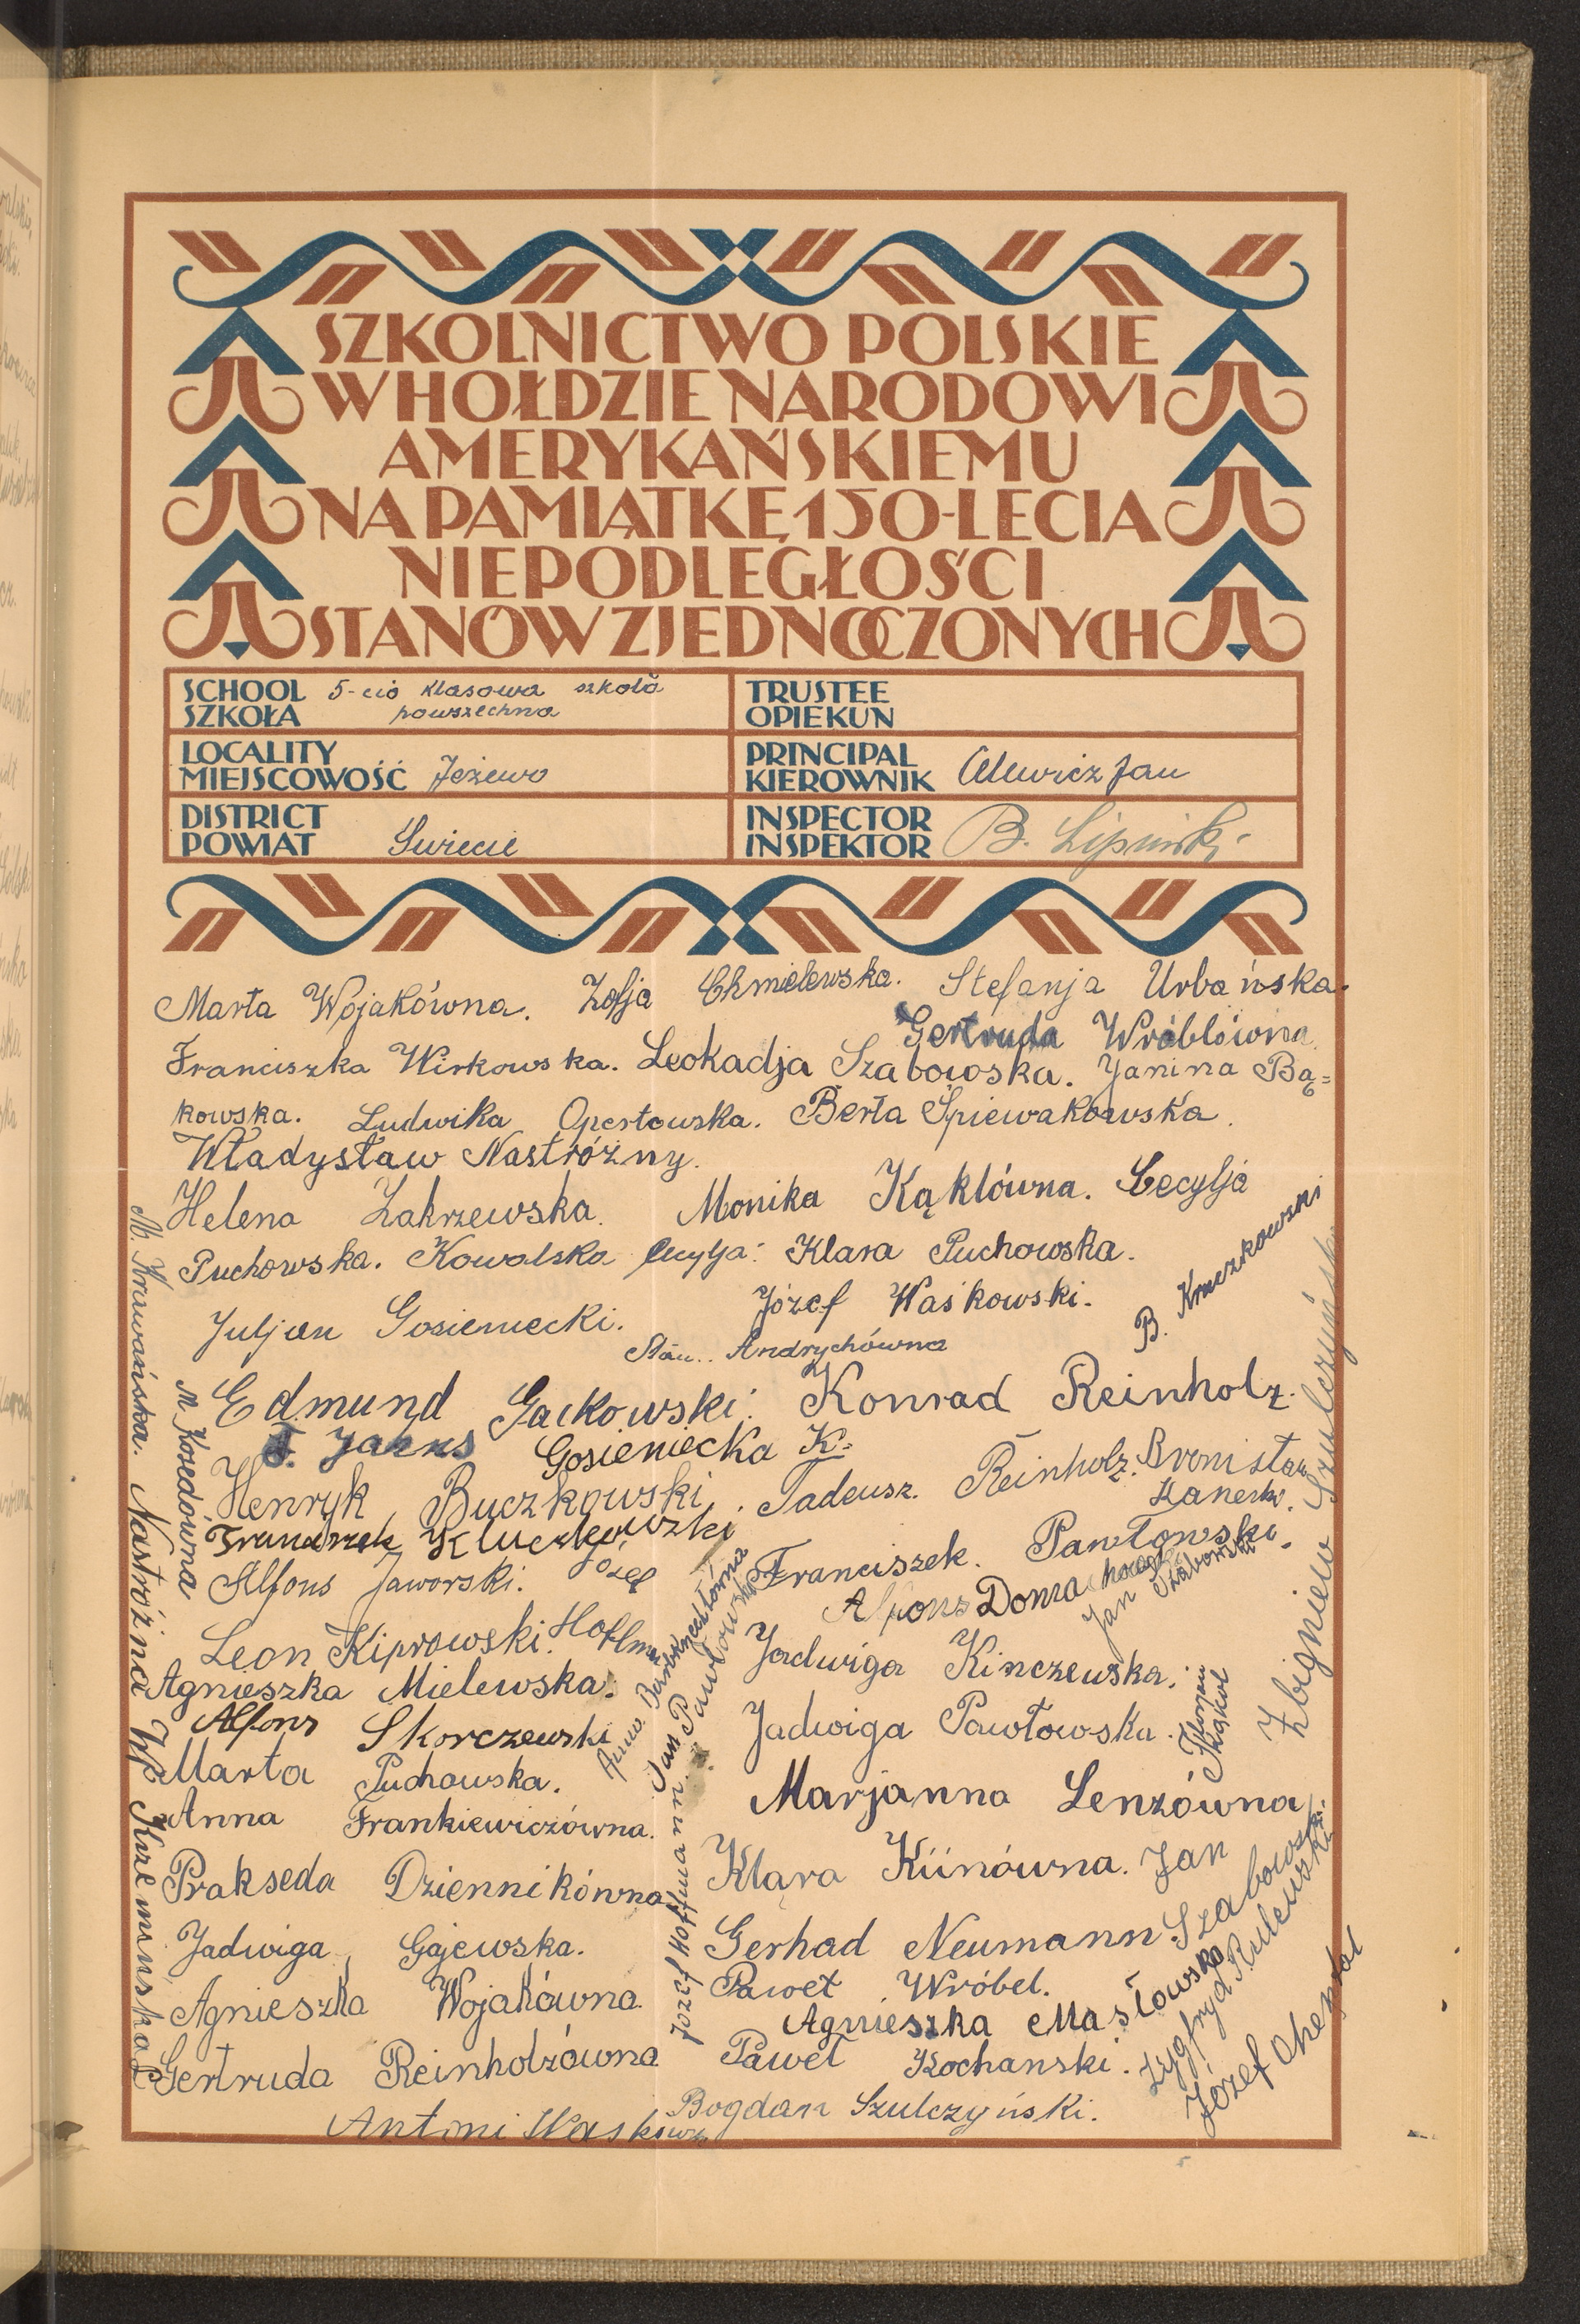 SZKOLNICTWO POLSKIE
W HOŁDZIE NARODOWI
AMERYKAŃSKIEMU
NA PAMIĄTKĘ 150-LECIA
NIEPODLEGŁOŚCI
STANÓW ZJEDNOCZONYCH
SCHOOL
SZKOŁA
5-cio klasowa szkoła
powszechna
TRUSTEE
OPIEKUN
LOCALITY
MIEJSCOWOŚĆ
Jeżewo
PRINCIPAL
KIEROWNIK
Jan
DISTRICT
POWIAT
Swiecie
INSPECTOR
INSPEKTOR
B. Lipiński
Marta Wojakówna. Zofja Chmielewska. Stefanja Urbańska.
Gertruda Wróblówna.
Franciszka Wirkowska. Leokadja Szabowska. Janina Bą=
kowska. Ludwika Berta Śpiewakowska.
Władysław Nastróżny.
Helena Zakrzewska. Monika Kąklówna. Cecylja
Puchowska. Kowalska Cecylja. Klara Puchowska.
Juljan Gosieniecki. Józef Waśkowski.
Stan.. Andrychówna
B. Kruczkowski
Edmund Gackowski. Konrad Reinholz.
Gosieniecka K=
Henryk Buczkowski. Tadeusz. Reinholz. Bronisław
Franciszek
Alfons Jaworski. Józef
Franciszek. Pawłowski.
Alfons
Jan Szabowski
Leon Kiprowski. Hoffman
Jadwiga Kinczewska.
Agnieszka Mielewska.
Alfons Skorczewski
Jadwiga Pawłowska.
Marta Puchowska.
Marjanna Lenzówna
Anna Frankiewiczówna.
Prakseda Dziennikówna
Klara Kiinówna. Jan
Szabowski.
Jadwiga Gajewska.
Gerhad Neumann.
Agnieszka Wojakówna.
Paweł Wróbel.
Agnieszka Masłowska
Gertruda Reinholzówna
Paweł Kochanski.
Zygfryd Rulewski
Józef
Bogdan Szulczyński.
Antoni
M. Krawańska. Nastróżna Wł. Krzemińska
M. Kosedówna
Anna
Jan Pawłowski
Józef Hoffmann.
Zbigniew Szulczyński